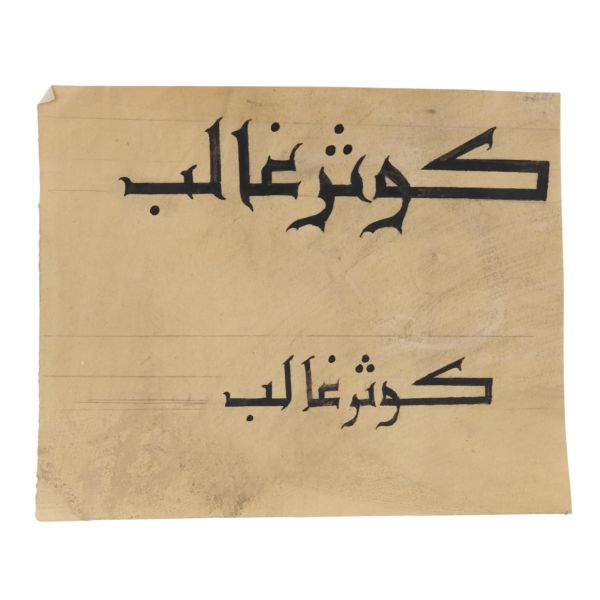 كوثر غالب
كوثر غالب